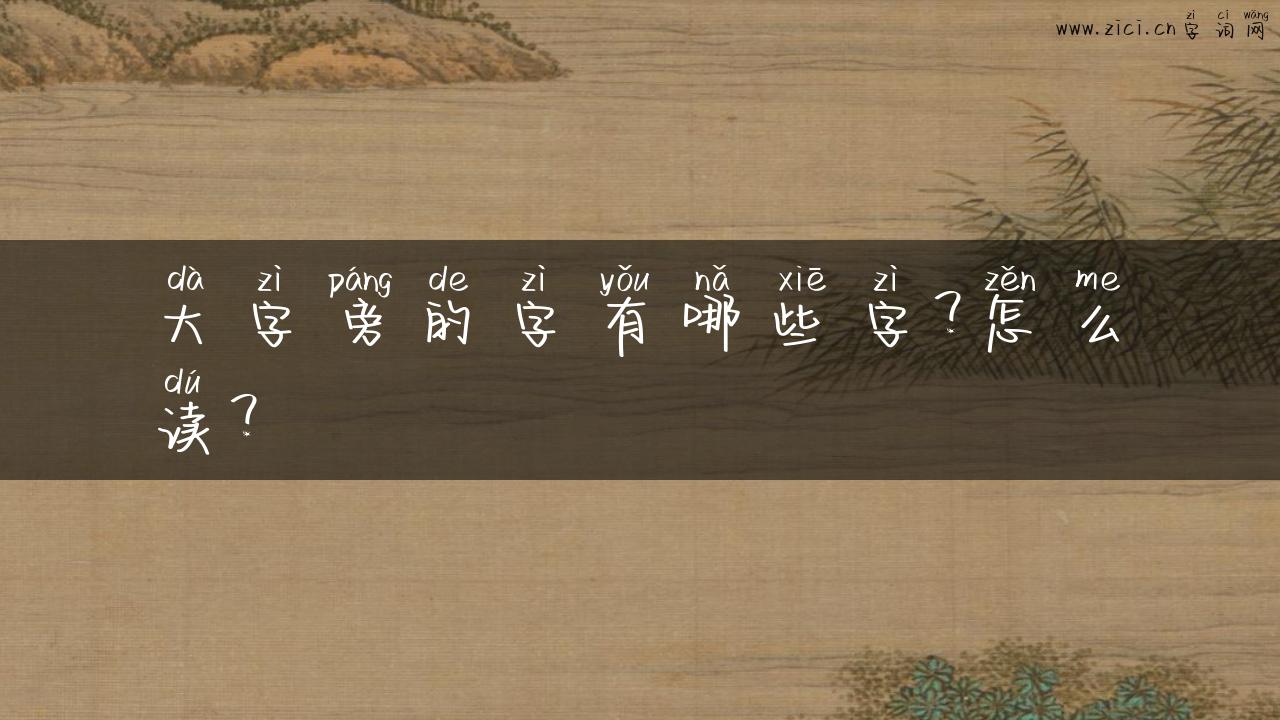 zì cí wǎng
www.zici.cn 字词网
dà zì páng de zì yǒu nǎ xiē zì zěn me
大字旁的字有哪些字?怎么
dú
读?